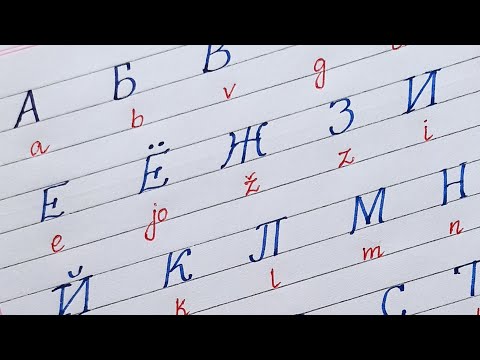 А Б В
a b v g
Е Ё Ж З И
e jo ž z i
Й К Л М Н
k l m n
С Т